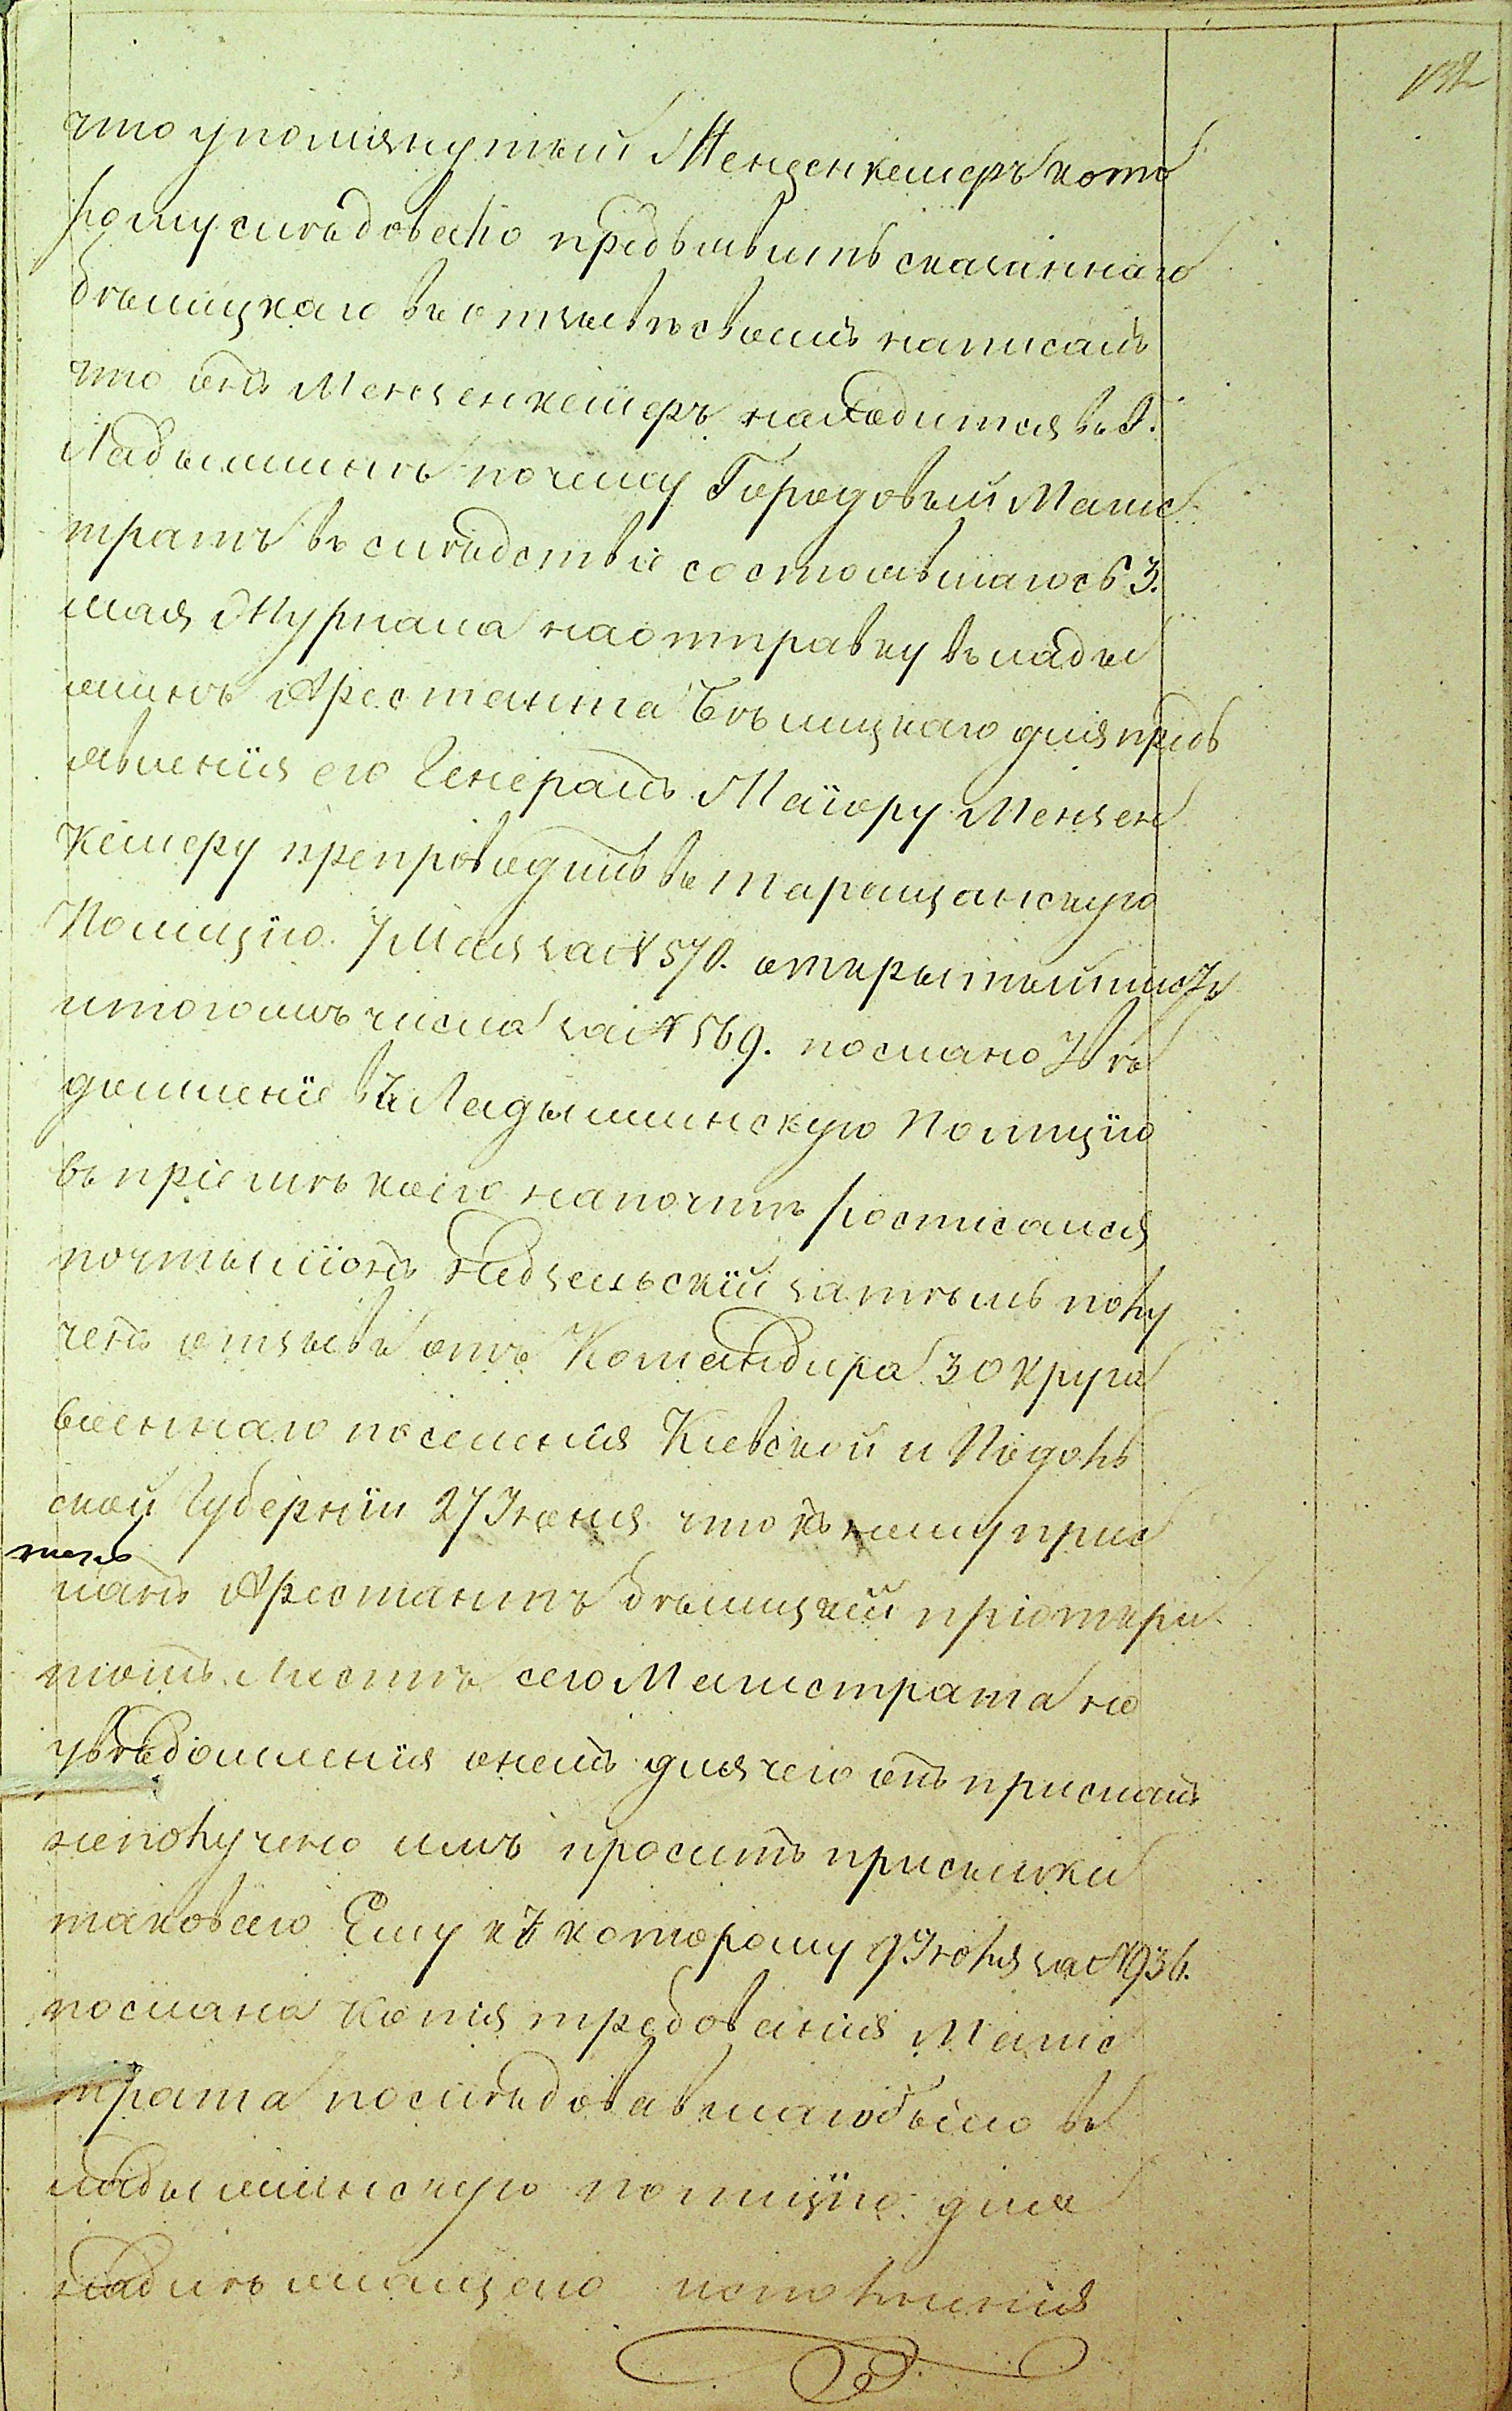 132
что упомянутый Менценкемеръ кото
рому следовало предъявить сказаннаго
Бѣлицкаго въ отзывѣ своемъ написалъ
что онъ Менценкемеръ находится въ г.
Ладыжинѣ почему Городовый Магис
тратъ въ слѣдствіе состоявшагося 3.
мая Журнала на отправку въ Лады
жинъ Арестанта Бѣлицкаго для предъ
явленія его Генералъ Маіору Менцен
кемеру препроводилъ въ Таращанскую
Полицію 7 Мая за № 570. открытый листъ
и того жъ числа за № 569. послано увѣ
домленіе въ Ладыжинскую Полицію
въ пріемѣ коего на почтѣ росписался
почталіонъ Надзельскій затѣмъ полу
ченъ отзывъ отъ Командира 3 округа
военнаго поселенія Кіевской и Подоль
ской Губерніи 27 Іюня что къ нему прис
ланъ Арестантъ Бѣлицкій при откры
томъ листѣ сего Магистрата но
увѣдомленія о немъ для чего онъ присланъ
неполучено имъ проситъ присылки
таковаго Ему къ которому 9 Іюля за № 936.
послана копія требованія Магис
трата послѣдовавшаго было въ
Ладыжинскую полицію для
надлежащаго исполненія